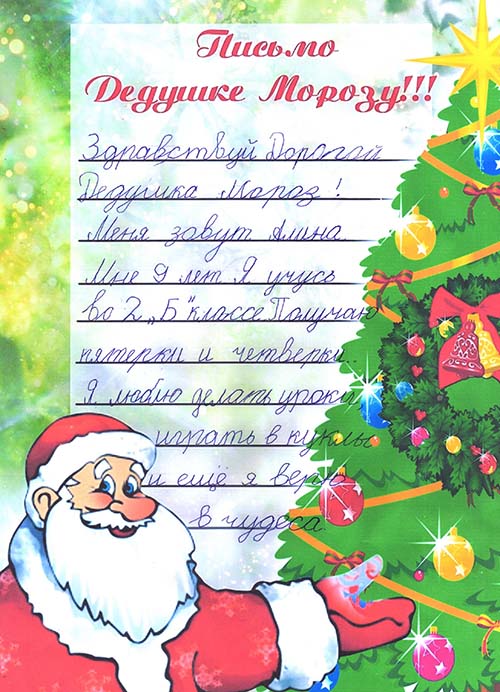 Письмо
Дедушке Морозу!!!
Здравствуй Дорогой
Дедушка Мороз!
Меня зовут Алина.
Мне 9 лет Я учусь
во 2 „Б" классе Получаю
пятерки и четверки..
Я люблю делать уроки
играть в куклы
и ещё я верю
в чудеса.